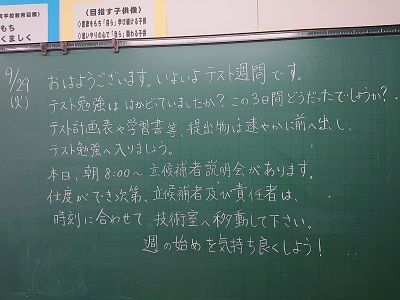 育学校教育目標】
もち
くましく
〈目指す子供像〉
○意欲をもち「自ら」学び続ける子供
○思いやりの心で「自ら」関わる子供
9/29
(火)
おはようございます。いよいよテスト週間です。
テスト勉強ははかどっていましたか？この3日間どうだったでしょうか？
テスト計画表や学習書等、提出物は速やかに前へ出し、
テスト勉強へ入りましょう。
本日、朝8:00〜立候補者説明会があります。
仕度ができ次第、立候補者及び責任者は、
時刻に合わせて技術室へ移動して下さい。
週の始めを気持ち良くしよう！